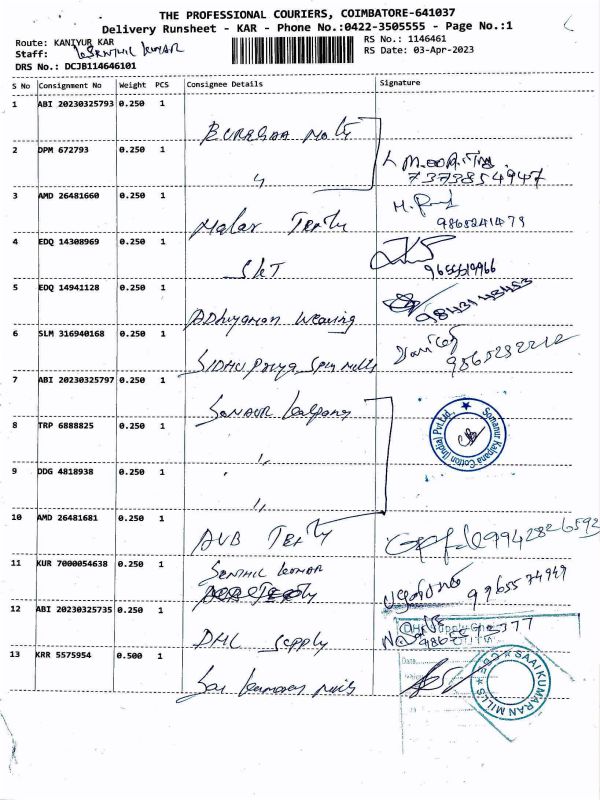 THE PROFESSIONAL COURIERS, COIMBATORE-641037
Delivery Runsheet - KAR - Phone No.:0422-3505555 - Page No.:1
Route: KANIYUR KAR
RS No.: 1146461
Staff: SENTHIL KUMAR
RS Date: 03-Apr-2023
DRS No.: DCJB114646101
S No Consignment No Weight PCS Consignee Details Signature
1 ABI 20230325793 0.250 1
2 DPM 672793 0.250 1 "
7373854947
3 AMD 26481660 0.250 1 Malar Texty
9865241479
4 EDQ 14308969 0.250 1 SKT
5 EDQ 14941128 0.250 1 Adhiyaman Weaving
9843143453
6 SLM 316940168 0.250 1 SIDHU Priya Spin Mills
7 ABI 20230325797 0.250 1
8 TRP 6888825 0.250 1 "
Somanur Kalpana Cotton (India) Pvt.Ltd.,
9 DDG 4818938 0.250 1 "
10 AMD 26481681 0.250 1 AVB Texty
9942826592
11 KUR 7000054638 0.250 1 SENTHIL KUMAR
9965574949
12 ABI 20230325735 0.250 1 DHL Supply
13 KRR 5575954 0.500 1 Sai Kumaran Mills
Date
SAAI KUMARAN MILLS * CBE *